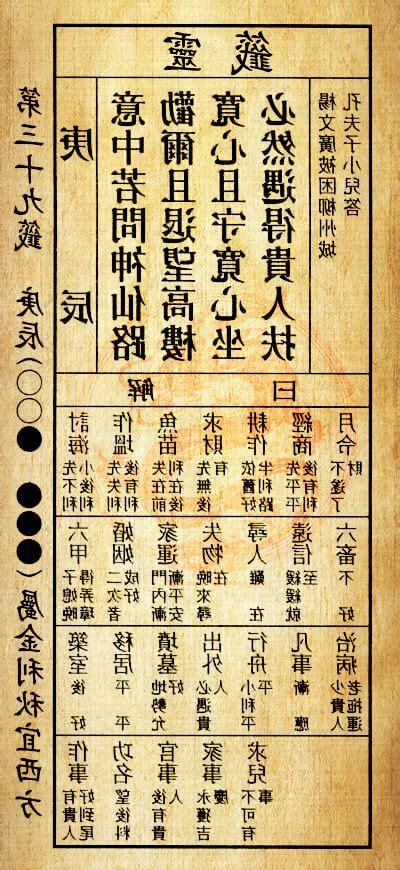 第三十九籤 庚辰(○○● ●●●)屬金利秋宜西方
靈籤
庚辰
意中若問神仙路
勸爾且退望高樓
寬心且守寬心坐
必然遇得貴人扶
楊文廣被困柳州城
孔夫子小兒答
解曰
討海 先不利 小後利
作塭 先失利 後有利
魚苗 失在前 利在後
求財 先無後有
耕作 依舊好 半利路
經商 先平平 後有利
月令 不遂了財
六甲 子媳晚 得弄璋
婚姻 二次者 成好
家運 門內漸 漸平安
失物 晚來尋在
尋人 難在
遠信 緩緩就至
六畜 不好
築室 後好
移居 平平
墳墓 地勢允好
出外 必遇貴人
行舟 小利平平
凡事 漸應
治病 少貴人 老拖運
作事 有貴人 好到尾
功名 望後料
官事 後有貴人
家事 永獲吉慶
求兒 不可有事